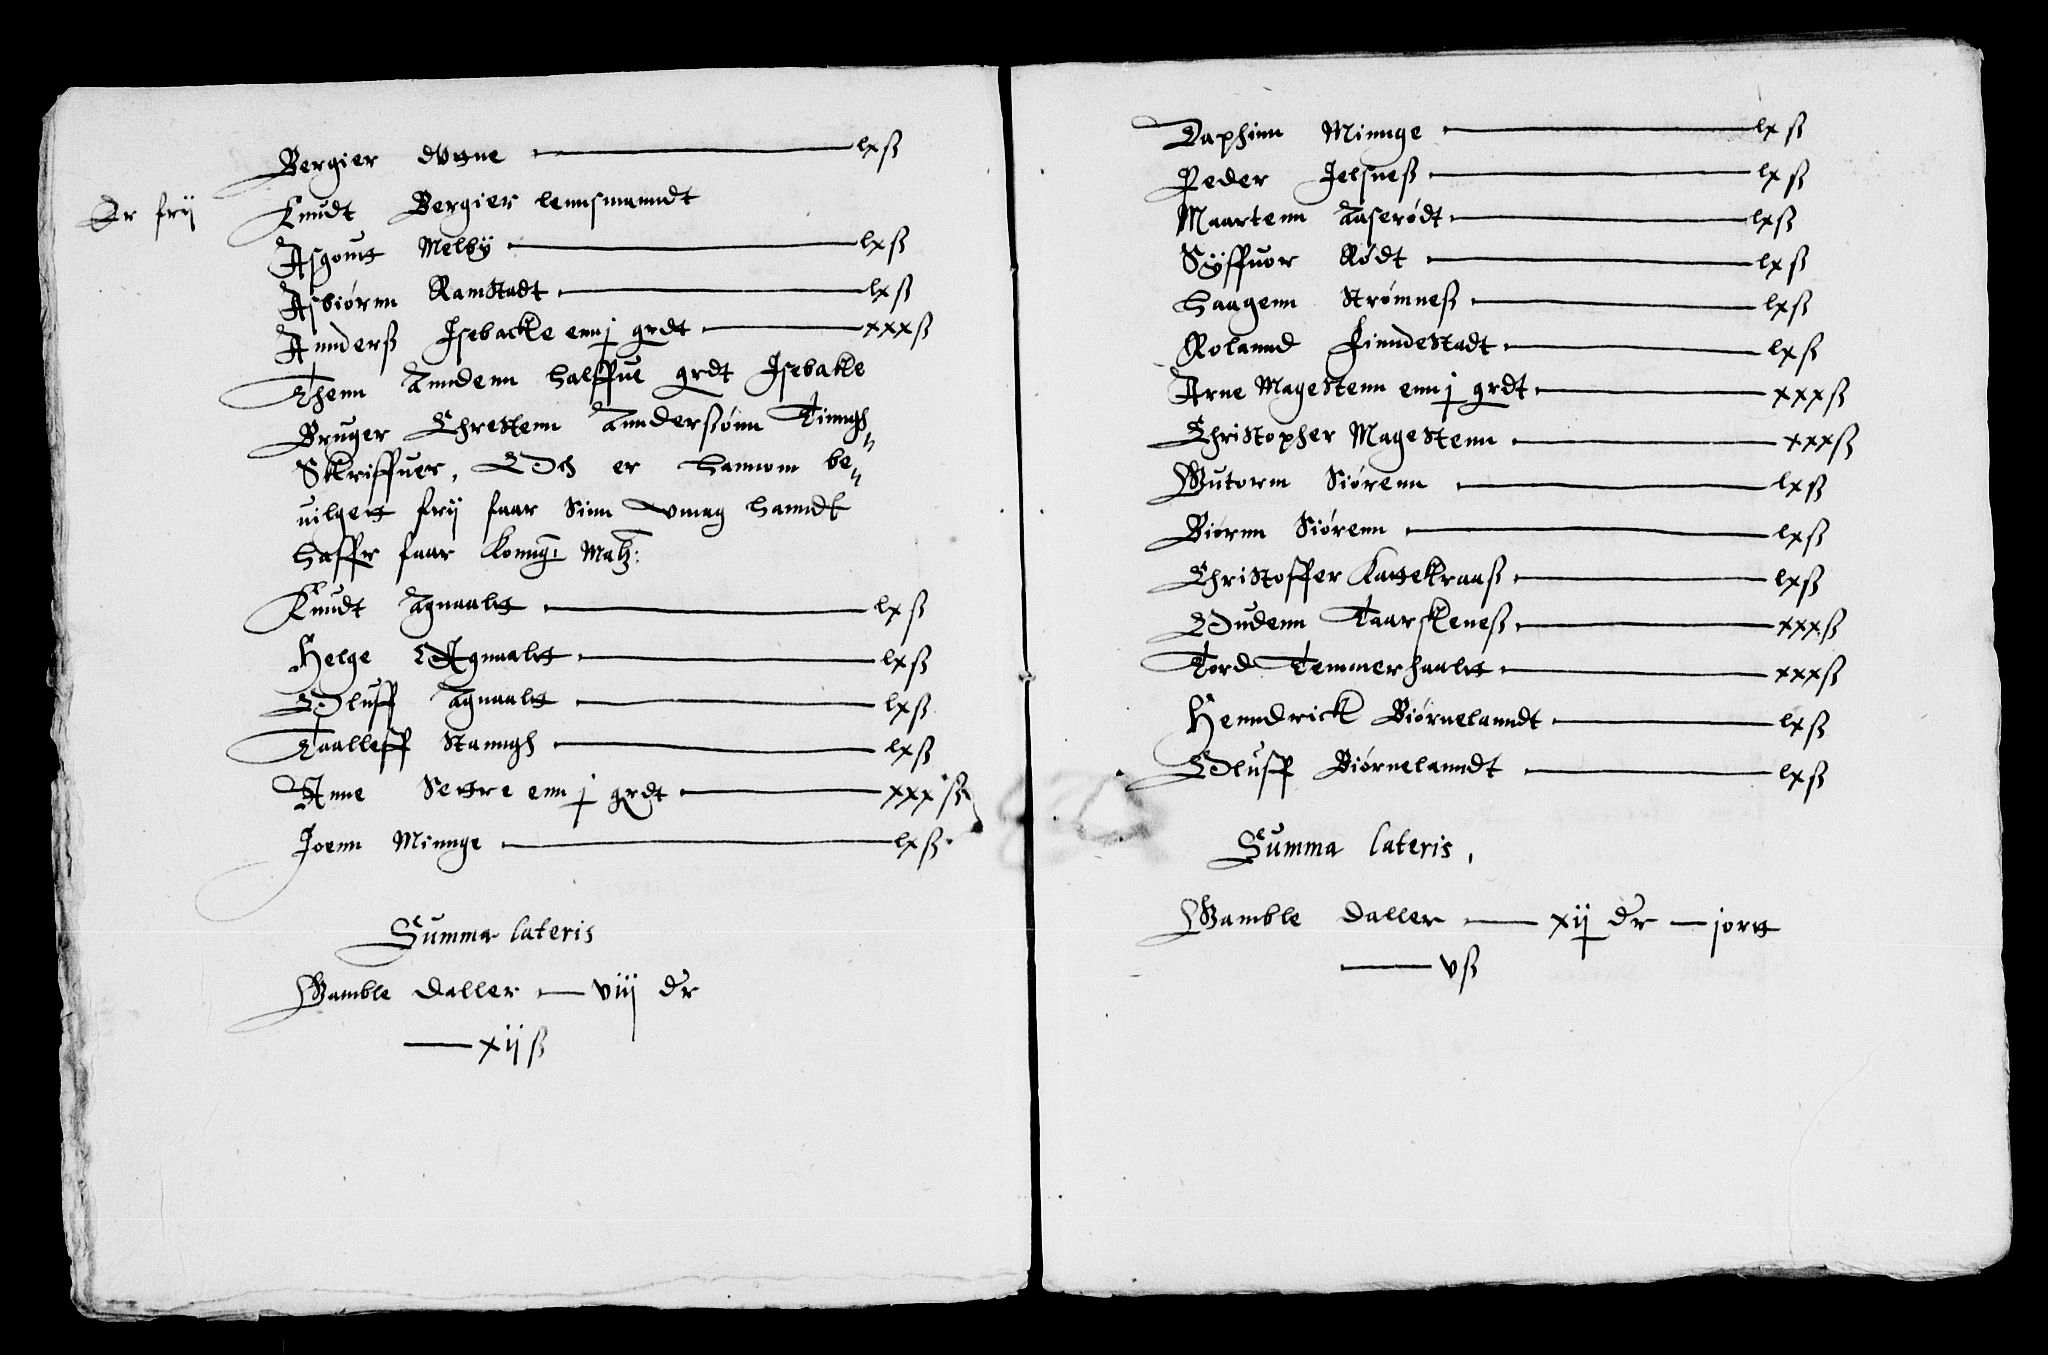 Bergier Øttne lxß
Er frij Knudt Bergier lennsmanndt
Asgoutt Melbÿ lxß
Asbiørnn Ramstadt lxß
Annderß Isebackle enn j grdt xxxß
Thenn Anndenn halffue grdt Isebakle
Bruger Chrestenn Annderssønn Tinngh„
Skriffuer, Och er hannom be„
uilgett frij faar sinn Vmag hanndt
haffr faar Konng: Matz:
Knudt Agnaaltt lxß
Helge Agnaaltt lxß
Oluff Agnaaltt lxß
Taalleff Stanngh lxß
Anne Settre enn j grdt xxxß
Joenn Minnge lxß
Summa lateris
Gamble daller viij dr
xijß
Daphinn Minnge lxß
Peder Jelsneß lxß
Maartenn Aaserødt lxß
Syffuor Rødt lxß
Haagenn Strømneß lxß
Rolannd Finndestadt lxß
Arne Magestenn enn j grdt xxxß
Christopher Magestenn xxxß
Gutorm Siørenn lxß
Biørnn Siørenn lxß
Christoffer Kattekraaß lxß
Oudenn Taarskeneß xxxß
Tord Temmerhaaltt xxxß
Henndrick Biørnelanndt lxß
Oluff Biørnelanndt lxß
Summa lateris,
Gamble daller xij dr j ortt
vß